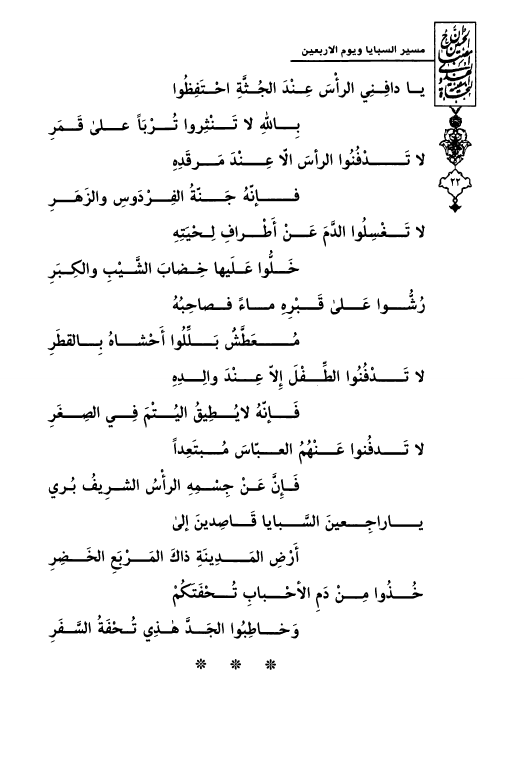 مسير السبايا ويوم الاربعين
٢٢
يــا دافِنِي الرأسَ عِنْدَ الجُثَّةِ احْتَفِظُوا
بِـاللهِ لا تَـنْثِروا تُـرْبَاً عـلىٰ قَـمَرِ
لا تَـدْفُنُوا الرأسَ الّا عِـنْدَ مَـرقَدِهِ
فـإنّهُ جَـنّةُ الفِـرْدَوسِ والزَهَـرِ
لا تَـغْسِلُوا الدَّمَ عَـنْ أَطْـرافِ لِـحْيَتِهِ
خَـلُّوا عَـليها خِـضابَ الشَّيْبِ والكِبَرِ
رُشُّـوا عَـلىٰ قَـبْرِهِ مـاءً فـصاحِبُهُ
مُـعَطَّشٌ بَـلِّلُوا أَحْشاهُ بِـالقطَرِ
لا تَـدْفُنُوا الطِّـفْلَ إلاّ عِـنْدَ والِـدِهِ
فَـإنّهُ لايُـطِيقُ اليُـتْمَ فِـي الصِـغَرِ
لا تَـدفُنوا عَـنْهُمُ العـبّاسَ مُـبتَعِداً
فَـإنَّ عَـنْ جِسْمِهِ الرأسُ الشريفُ بُري
يـاراجِـعينَ السَّـبايا قَـاصِدينَ إلىٰ
أَرْضِ المَـدِينَةِ ذاكَ المَـرْبَعِ الخَـضِرِ
خُـذُوا مِـنْ دَمِ الأحْـبابِ تُـحْفَتَكُمْ
وَخـاطِبُوا الجَـدَّ هٰـذِي تُـحْفَةُ السَّـفَرِ